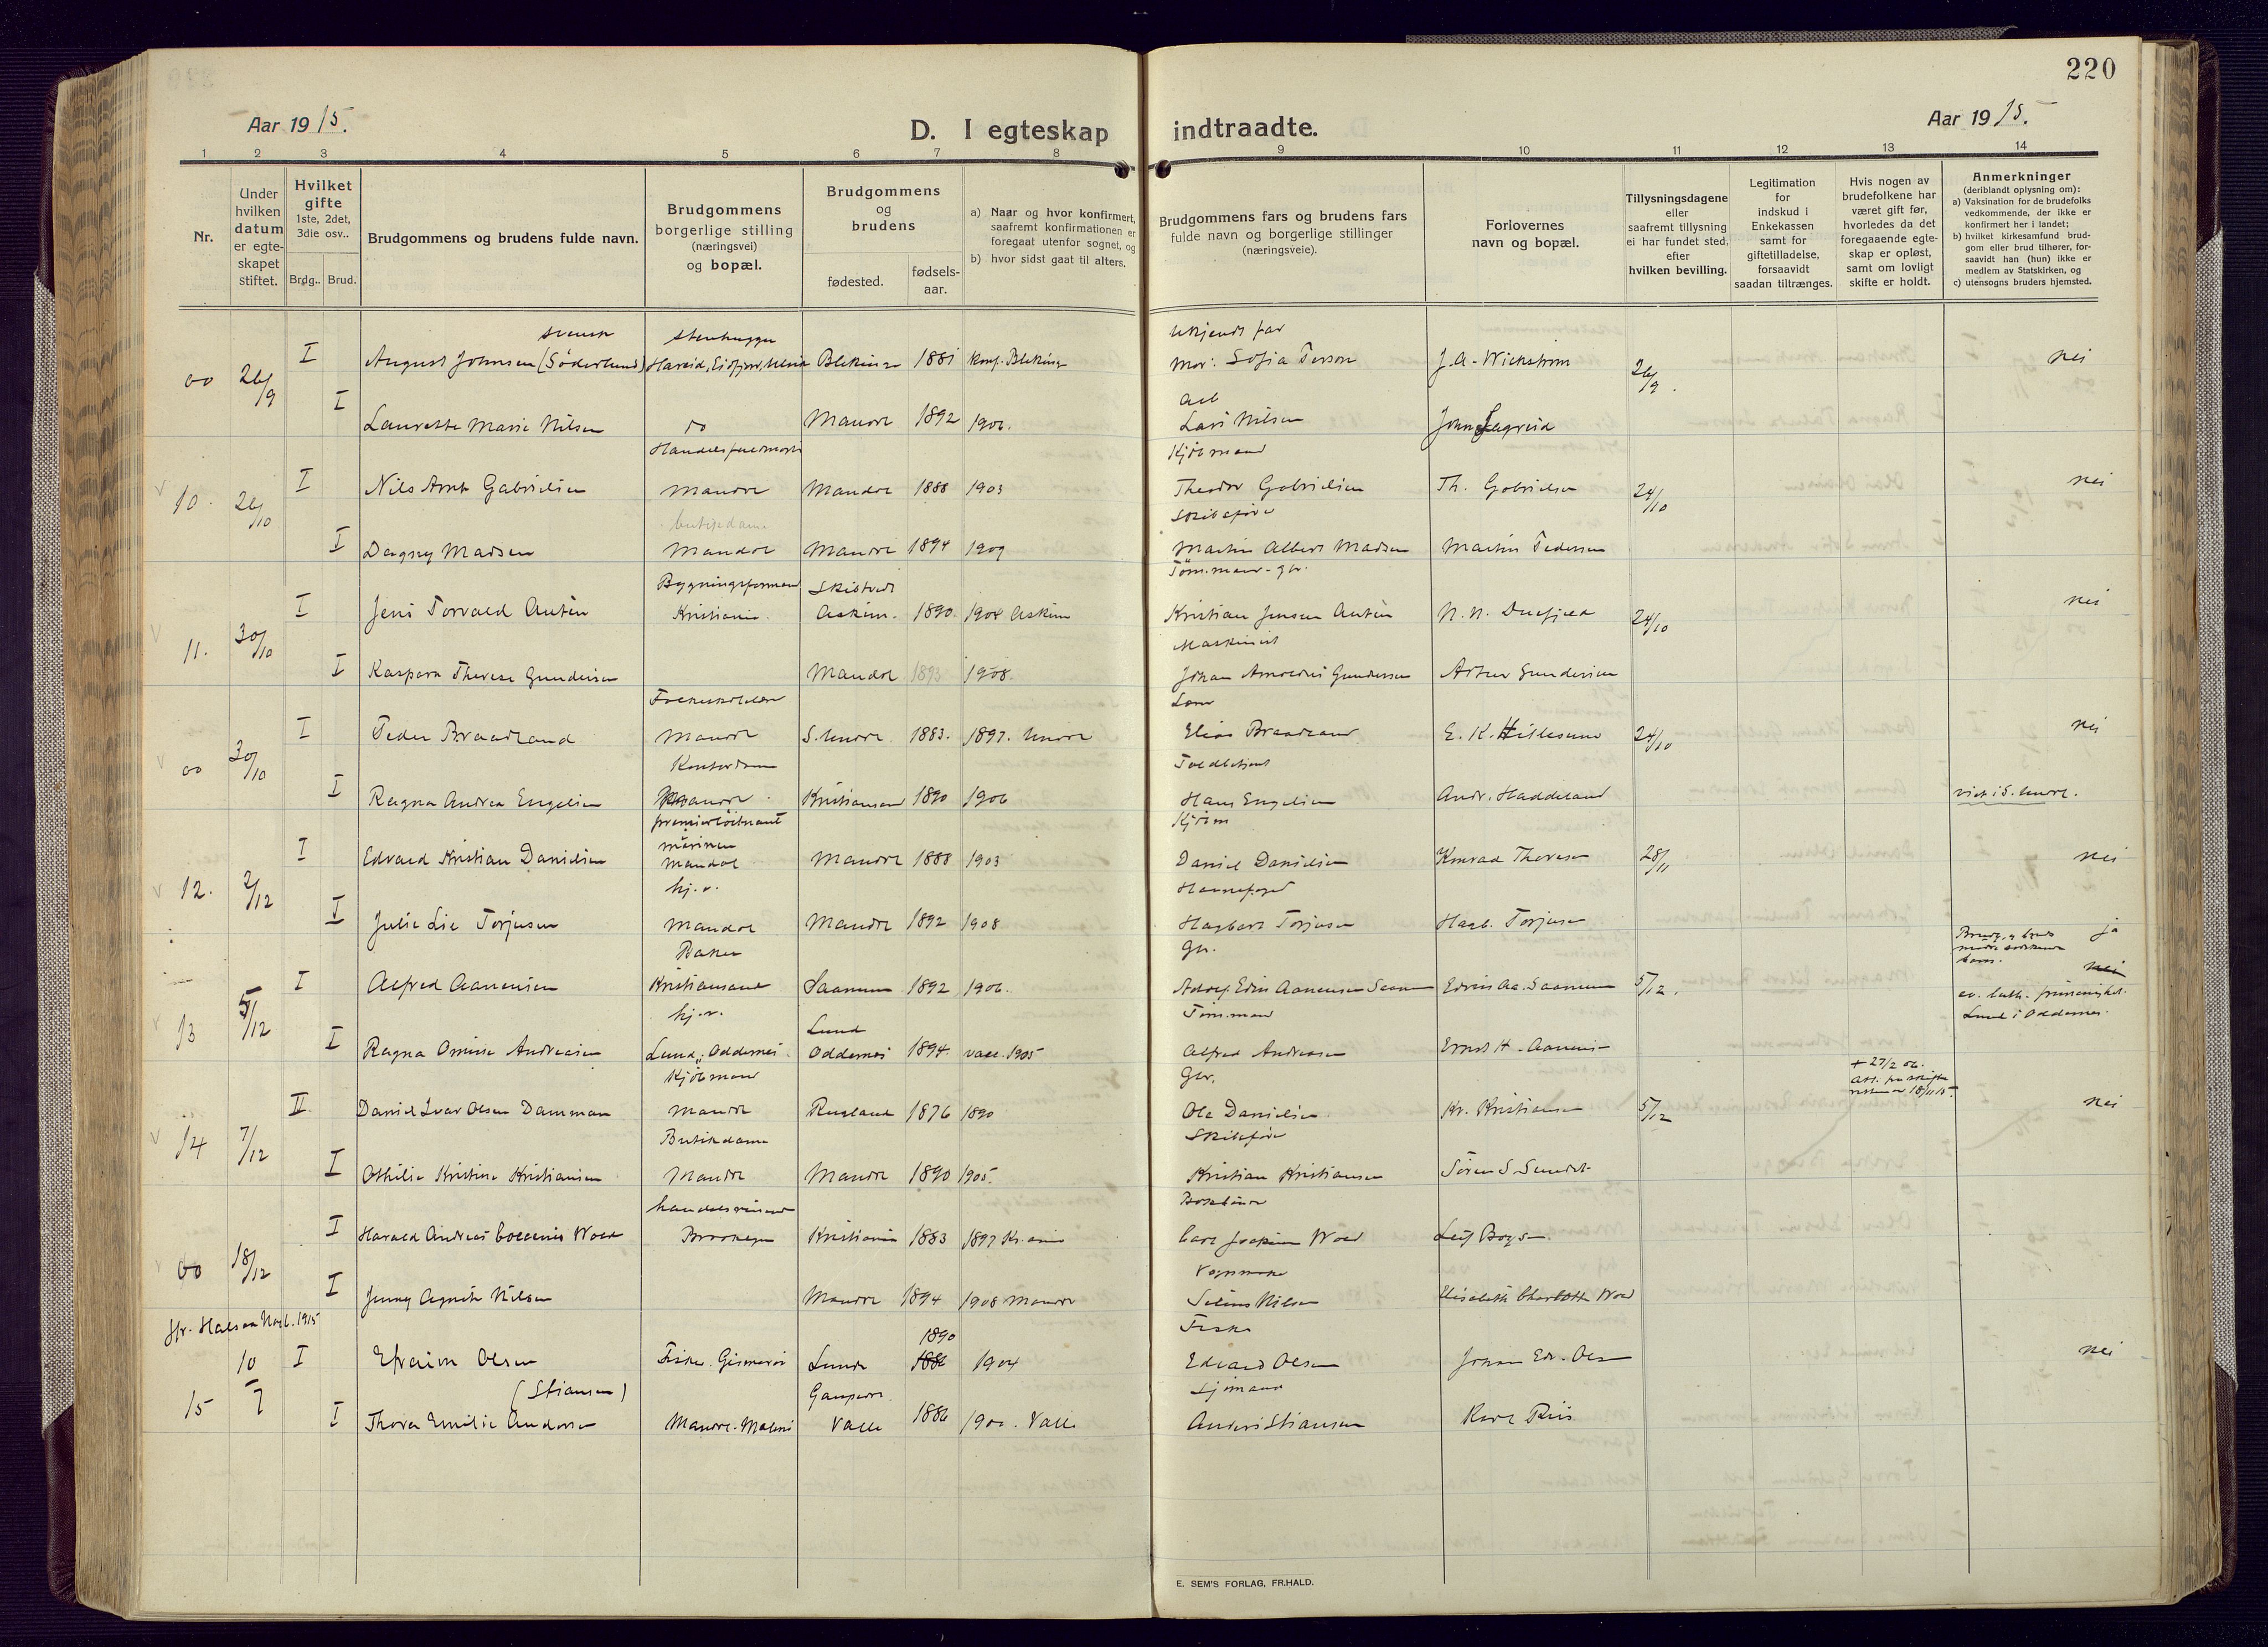 220
Aar 1915.
D. I egteskap indtraadte.
Aar 1915.
1 2 3 4 5 6 7 8 9 10 11 12 13 14
Nr.
Under
hvilken
datum
er egte-
skapet
stiftet.
Hvilket
gifte
1ste, 2det,
3die osv..
Brdg.. Brud.
Brudgommens og brudens fulde navn.
Brudgommens
borgerlige stilling
(næringsvei)
og bopæl.
Brudgommens
og
brudens
fødested.
fødsels-
aar.
a) Naar og hvor konfirmert,
saafremt konfirmationen er
foregaat utenfor sognet, og
b) hvor sidst gaat til alters.
Brudgommens fars og brudens fars
fulde navn og borgerlige stillinger
(næringsveie).
Forlovernes
navn og bopæl.
Tillysningsdagene
eller
saafremt tillysning
ei har fundet sted,
efter
hvilken bevilling.
Legitimation
for
indskud i
Enkekassen
samt for
giftetilladelse,
forsaavidt
saadan tiltrænges.
Hvis nogen av
brudefolkene har
været gift før,
hvorledes da det
foregaaende egte-
skap er opløst,
samt om lovligt
skifte er holdt.
Anmerkninger
(deriblandt oplysning om):
a) Vaksination for de brudefolks
vedkommende, der ikke er
konfirmert her i landet;
b) hvilket kirkesamfund brud-
gom eller brud tilhører, for-
saavidt han (hun) ikke er
medlem av Statskirken, og
c) utensogns bruders hjemsted.
svensk stenhugger ukjendt far
oo 26/9 I August Johnsen (Söderlund) Hareid, Eidfjord, Ulvik Blekinge 1881 konf. Blekinge Mor: Sofia Person J. A. Wickstrøm 26/9. nei
arb
I Laurette Marie Nilsen do Mandal 1892 1906. Lars Nilsen John Lægreid
Handelsfuldmægtig Kjøbmand
10. 26/10 I Nils Arnt Gabrielsen Mandal Mandal 1888 1903 Theodor Gabrielsen Th. Gabrielsen 24/10 nei
butikdame Skibsfører
I Dagny Madsen Mandal Mandal 1894 1909 Martin Albert Madsen Martin Pedersen
Bygningsformand Skibtvedt Tømmermand - gbr.
11. 30/10 I Jens Torvald Antin Kristiania Askim. 1890. 1904 Askim Kristian Jensen Antin N. N. Duefjeld 24/10 nei
Maskinist
I Kaspara Therese Gundersen Mandal 1893 1908. Johan Arnoldus Gundersen Artur Gundersen
Folkeskolelærer
oo 30/10 I Peder Braadland Mandal S. Undal 1883. 1897. Undal Elias Braadland E. K. Hillesund 24/10 nei
Kontordame Toldbetjent
I Ragna Andrea Engelsen Mandal Kristiansand 1890 1906 Hans Engelsen Andr. Haddeland viet i S. Undal.
premierløitnant
marinen
12. 2/12 I Edvard Kristian Danielsen Mandal Mandal 1888 1903 Daniel Danielsen Konrad Thoresen 28/11 nei
hj. v. Havnefoged
I Julie Lie Torjusen Mandal Mandal 1892 1908 Hagbart Torjusen Hagb. Torjusen
Baker Gbr. ja
13 5/12 I Alfred Aanensen Kristiansand Saanum 1892 1906. Adolf Edin Aanensen Saanum Edvin Aa. Saanum 5/12. nei
hj. v. Tømmermand ev. luth. frimenighet.
Lund i Oddernes.
Lund
I Ragna Omine Andreasen Lund, Oddernes Oddernes 1894 vacc. 1905 Alfred Andreasen Ernst H. Aanensen
Kjøbmand Gbr. + 27/2 06.
14 7/12 II Daniel Ivar Olsen Damman Mandal Rusland 1876 1890 Ole Danielsen Kr. Kristiansen 5/12 nei
Butikdame Skibsfører
I Othilie Kristine Kristiansen Mandal Mandal 1890 1905. Kristian Kristiansen Søren S. Sundet
handelsreisende
oo 18/12 I Harald Andreas Wold Kristiania 1883 1897 Kr.ania Carl Joakim Wold Leif Boysen.
I Jenny Agnete Nilsen Mandal 1894 1908 Mandal Selius Nilsen Elisabeth Charlotte Wold
jfr. Halsaa Nagb. 1915 Fisker
1890
15 10/7 I Efraim Olsen Fisker. Gismerøi Lunde 1886 1904 Edvard Olsen Johan Edv. Olsen nei
(Stiansen) Sjømand
I Thora Emilie Andersen Mandal - Malmø Valle 1886 1900. Valle Anders Stiansen Karl Riis
E. SEM'S FORLAG, FR.HALD.